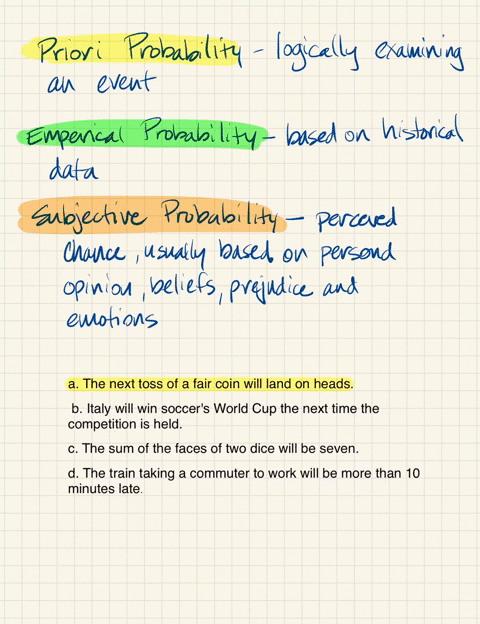 Priori Probability – logically examining
an event
Emperical Probability – based on historical
data
Subjective Probability – perceved
chance, usually based on personal
opinion, beliefs, prejudice and
emotions
a. The next toss of a fair coin will land on heads.
b. Italy will win soccer's World Cup the next time the
competition is held.
c. The sum of the faces of two dice will be seven.
d. The train taking a commuter to work will be more than 10
minutes late.